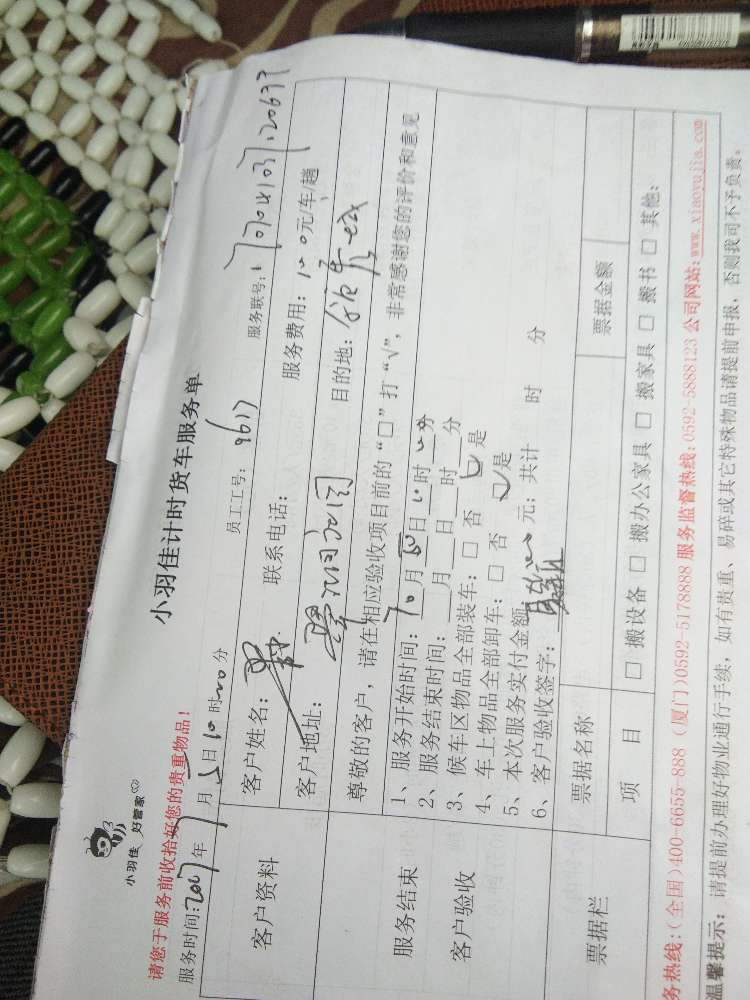 小羽佳 好管家
小羽佳计时货车服务单
请您于服务前收拾好您的贵重物品!
服务时间:2017年 月 日10时00分 员工工号: 9617 服务联号:
客户资料 客户姓名: 联系电话: 服务费用: 元/车/趟
客户地址: 目的地:
尊敬的客户，请在相应验收项目前的“□”打“√”，非常感谢您的评价和意见
服务结束
客户验收
1、服务开始时间: 月 日 10时 00分
2、服务结束时间:___月___日___时___分
3、候车区物品全部装车: □ 否 是
4、车上物品全部卸车: □ 否 是
5、本次服务实付金额 元; 共计 时 分
6、客户验收签字:
票据栏 票据名称 票据金额
项 目 □ 搬设备 □ 搬办公家具 □ 搬家具 □ 搬书 □ 其他:
务热线:(全国)400-6655-888 (厦门)0592-5178888 服务监督热线: 0592-5888123 公司网站: www.xiaoyujia.com
温馨提示: 请提前办理好物业通行手续, 如有贵重、易碎或其它特殊物品请提前申报, 否则我司不予负责。